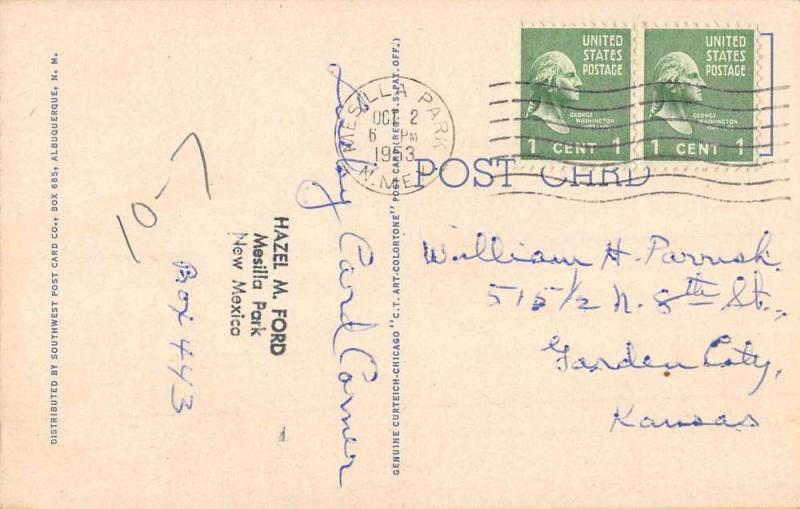 DISTRIBUTED BY SOUTHWEST POST CARD CO., BOX 685, ALBUQUERQUE, N. M.
Card Corner
HAZEL M. FORD
Mesilla Park
New Mexico
Box 443
GENUINE CURTEICH-CHICAGO "C.T. ART-COLORTONE" POST CARD (REG. U.S. PAT. OFF.)
MESILLA PARK
OCT 2
6 PM
1953
N.MEX.
UNITED
STATES
POSTAGE
GEORGE
WASHINGTON
1 CENT 1
UNITED
STATES
POSTAGE
GEORGE
WASHINGTON
1 CENT 1
POST CARD
William H. Parrish
515 1/2 N. 8th St.,
Garden City,
Kansas